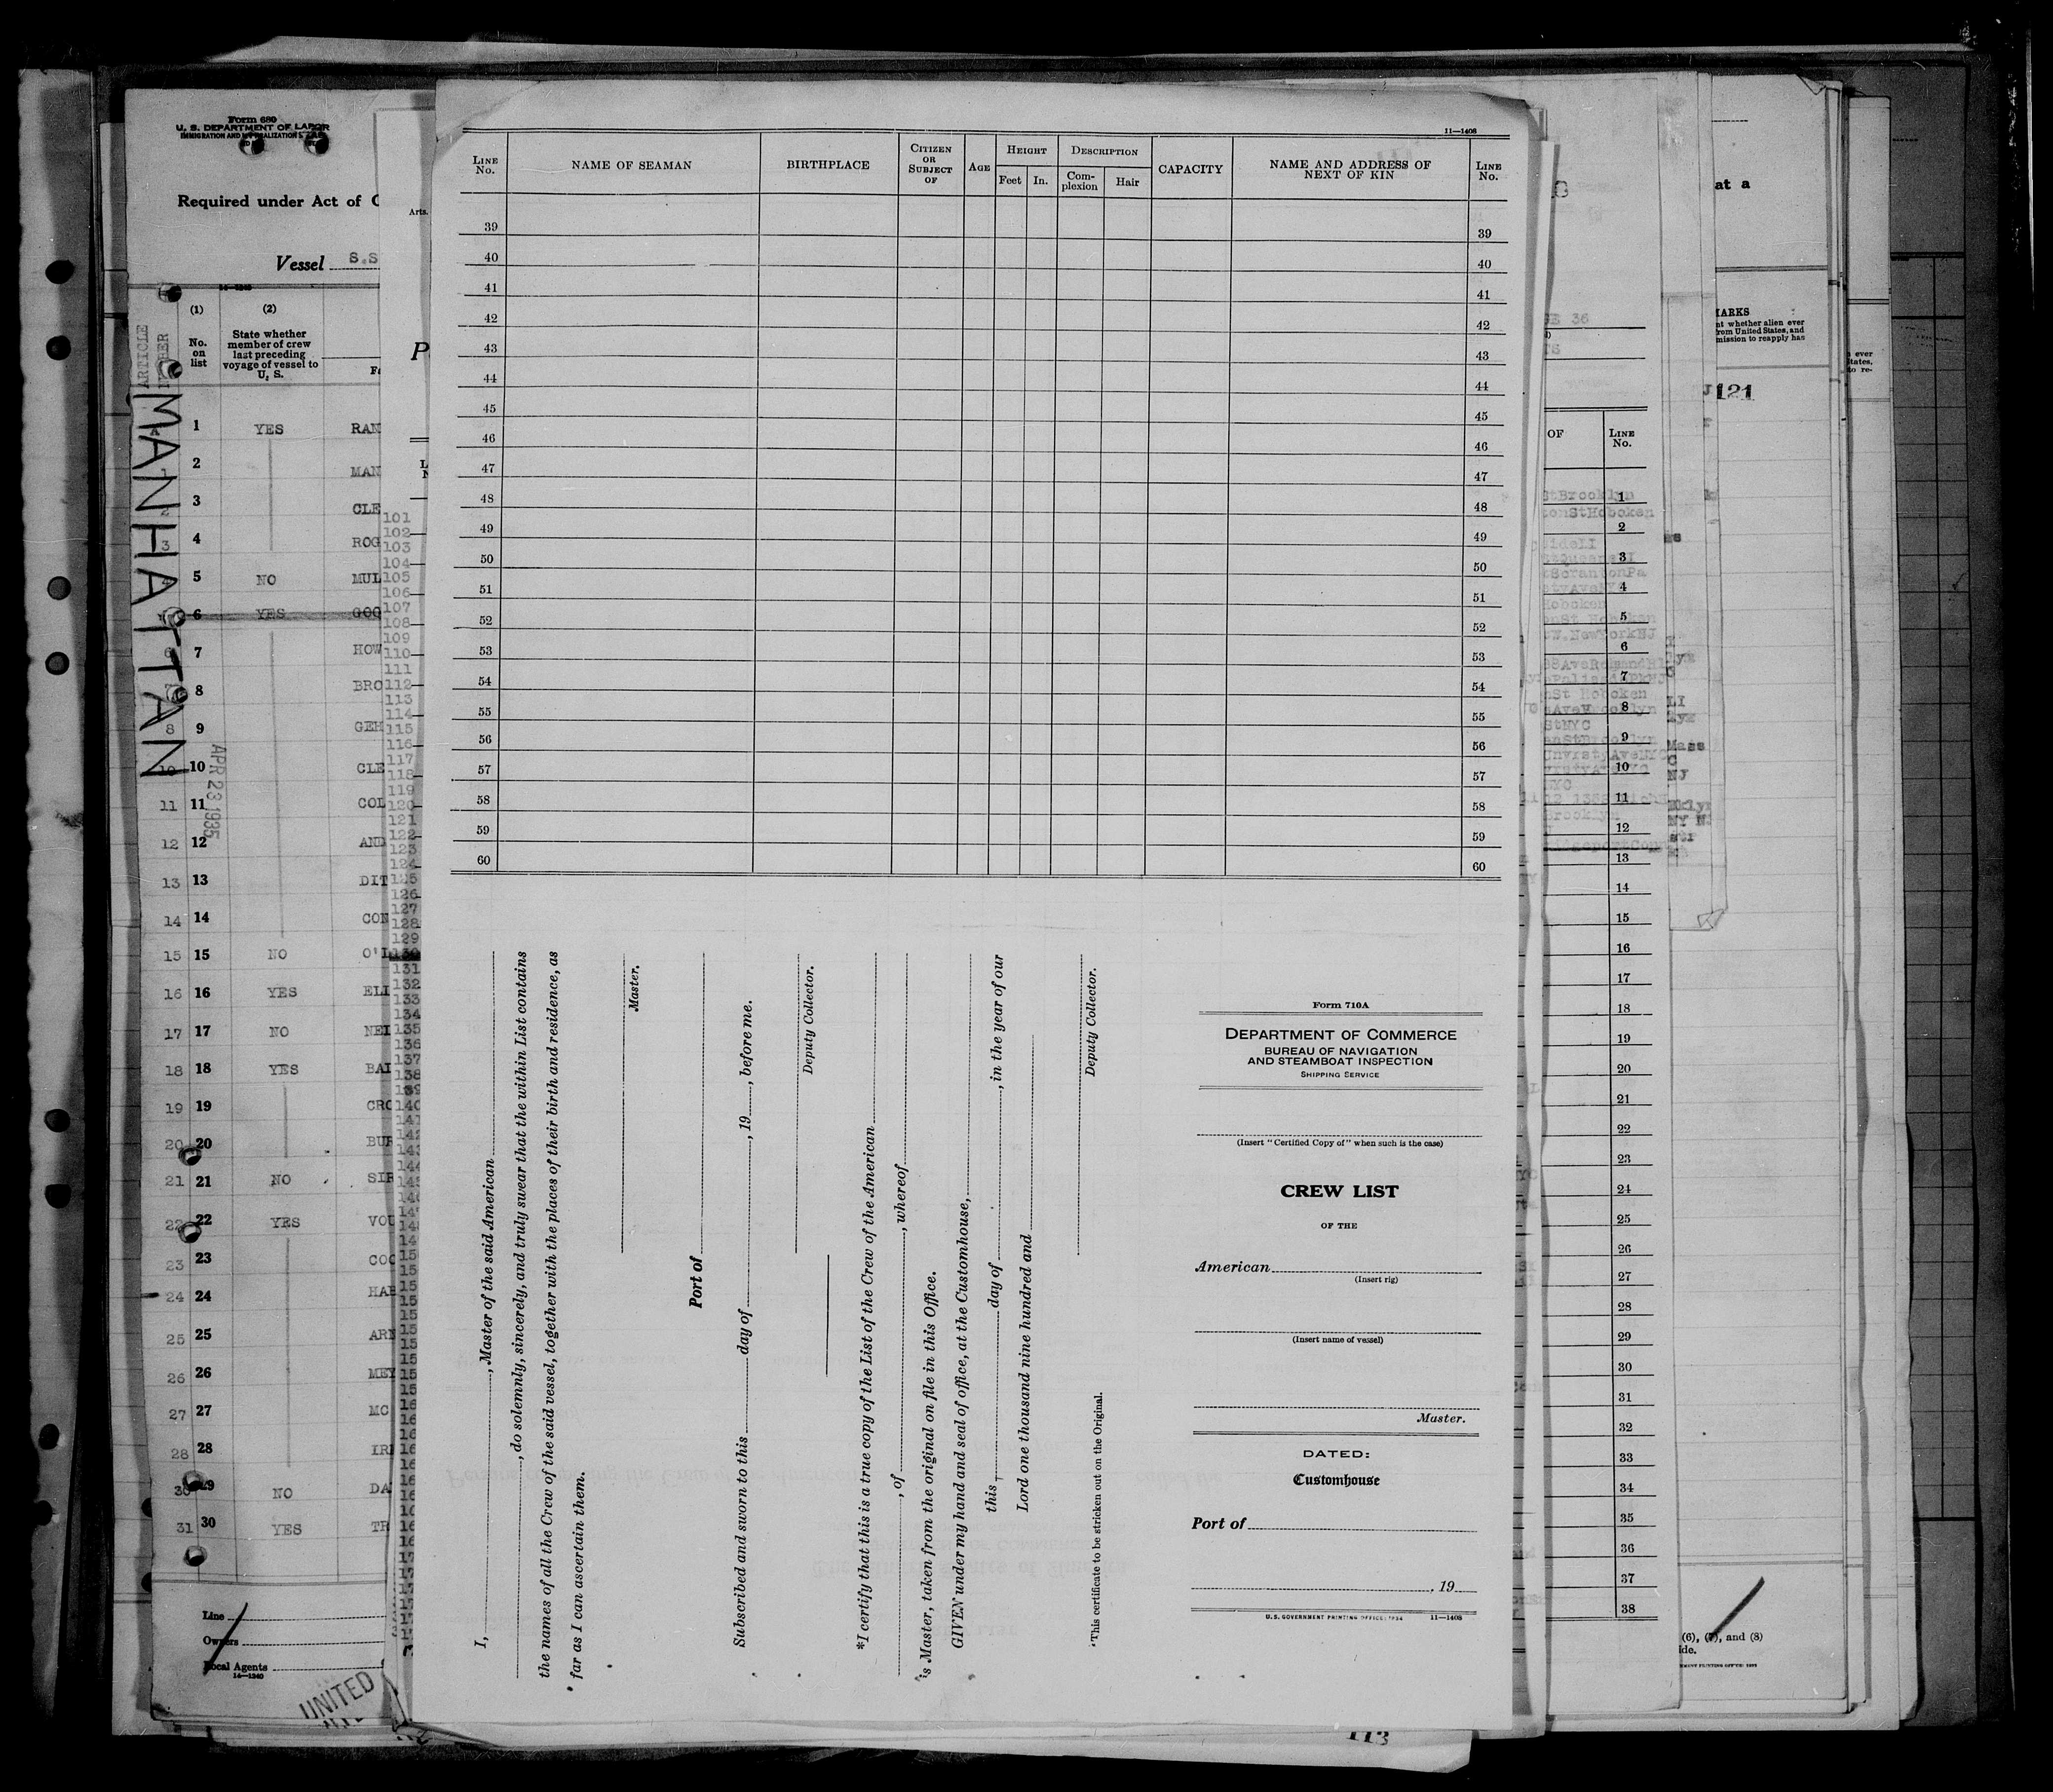 Form 680
U. S. DEPARTMENT OF LABOR
Required under Act of
Vessel S.S
14—1240
(1)
No.
on
list
(2)
State whether
member of crew
last preceding
voyage of vessel to
U. S.
ARTICLE
NUMBER
MANHATTAN
APR 23 1935
1 YES RAN
2 MAN
3 CLE
3 4 ROG
5 NO MUL
6 YES GOO
6 7 HOW
7 8 BRO
8 9 GEH
10 10 CLE
11 11 COL
12 12 AND
13 13 DIT
14 14 CON
15 15 NO O'L
16 16 YES ELL
17 17 NO NEI
18 18 YES BAI
19 19 CRO
20 20 BUR
21 21 NO SIR
22 22 YES VOU
23 23 COO
24 24 HAR
25 25 ARN
26 26 MEY
27 27 MC
28 28 IRI
30 29 NO DA
31 30 YES TR
Line
Owners
Local Agents
14—1240
UNITED
Arts.
P
101
102
103
104
105
106
107
108
109
110
111
112
113
114
115
116
117
118
119
120
121
122
123
124
125
126
127
128
129
130
131
132
133
134
135
136
137
138
139
140
11—1408
LINE No. NAME OF SEAMAN BIRTHPLACE CITIZEN OR SUBJECT OF AGE HEIGHT Feet In. DESCRIPTION Complexion Hair CAPACITY NAME AND ADDRESS OF NEXT OF KIN LINE No.
39 39
40 40
41 41
42 42
43 43
44 44
45 45
46 46
47 47
48 48
49 49
50 50
51 51
52 52
53 53
54 54
55 55
56 56
57 57
58 58
59 59
60 60
I, , Master of the said American
, do solemnly, sincerely, and truly swear that the within List contains
the names of all the Crew of the said vessel, together with the places of their birth and residence, as
far as I can ascertain them.
Master.
Port of
Subscribed and sworn to this day of , 19 , before me.
Deputy Collector.
*I certify that this is a true copy of the List of the Crew of the American
, of , whereof
is Master, taken from the original on file in this Office.
GIVEN under my hand and seal of office, at the Customhouse,
this day of , in the year of our
Lord one thousand nine hundred and
Deputy Collector.
*This certificate to be stricken out on the Original.
Form 710A
DEPARTMENT OF COMMERCE
BUREAU OF NAVIGATION
AND STEAMBOAT INSPECTION
SHIPPING SERVICE
(Insert "Certified Copy of" when such is the case)
CREW LIST
OF THE
American
(Insert rig)
(Insert name of vessel)
Master.
DATED:
Customhouse
Port of
, 19
U. S. GOVERNMENT PRINTING OFFICE: 1934 11—1408
113
36
OF
LINE
No.
StBrooklyn 1
onStHoboken
2
3
ScrantonPa
4
Hoboken
5
W.NewYorkNJ
6
7
nSt Hoboken
8
StNYC
9
10
11
Brooklyn
12
13
14
15
16
17
18
19
20
21
22
23
24
25
26
27
28
29
30
31
32
33
34
35
36
37
38
LI
Mass
C
NJ
at a
MARKS
nt whether alien ever
from United States, and
mission to reapply has
121
(6), (7), and (8)
ide.
n ever
States,
to re-